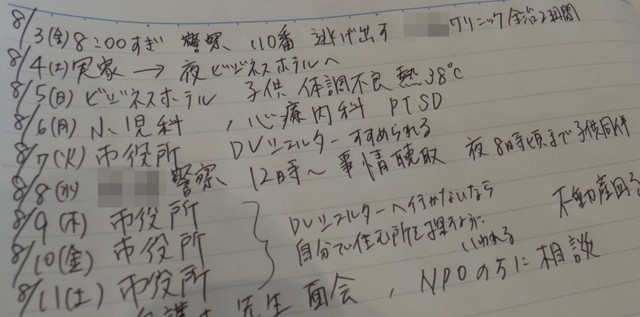 8/3(金) 8:00すぎ 警察、110番 逃げ出す クリニック 全治2週間
8/4(土) 実家 → 夜ビジネスホテルへ
8/5(日) ビジネスホテル 子供 体調不良 熱38℃
8/6(月) 小児科 , 心療内科 PTSD
8/7(火) 市役所 DVシェルターすすめられる
8/8(水) 警察 12時〜 事情聴取 夜8時頃まで子供同伴
8/9(木) 市役所 DVシェルターへ行かないなら 不動産回る
8/10(金) 市役所 自分で住む所を探すように
いわれる
8/11(土) 市役所
先生 面会 , NPOの方に相談